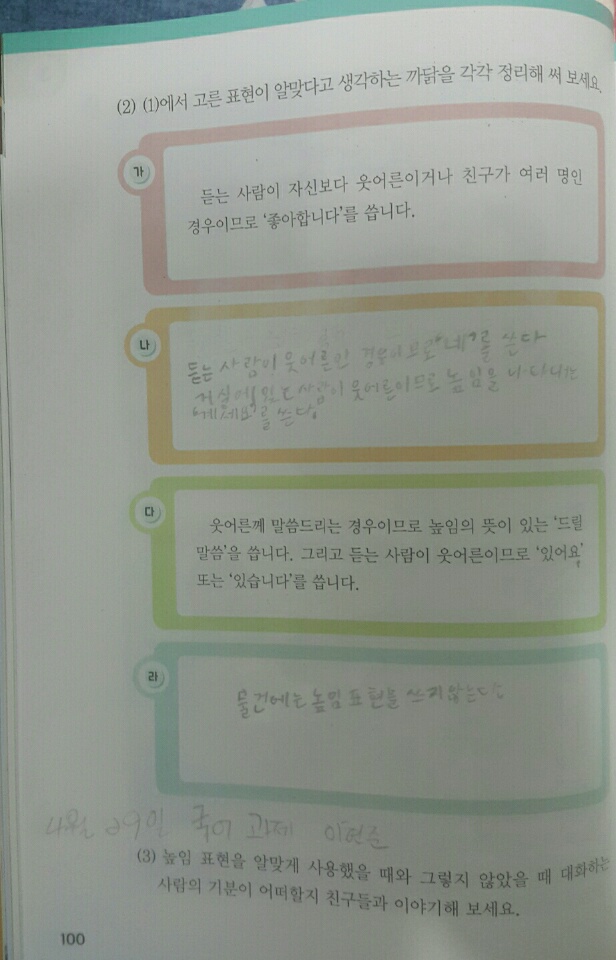 (2) (1)에서 고른 표현이 알맞다고 생각하는 까닭을 각각 정리해 써 보세요.
가
듣는 사람이 자신보다 웃어른이거나 친구가 여러 명인
경우이므로 ‘좋아합니다’를 씁니다.
나
듣는 사람이 웃어른인 경우이므로 "네"를 쓴다
거실에 있는 사람이 웃어른이므로 높임을 나타내는
를 쓴다.
다
웃어른께 말씀드리는 경우이므로 높임의 뜻이 있는 ‘드릴
말씀’을 씁니다. 그리고 듣는 사람이 웃어른이므로 ‘있어요’
또는 ‘있습니다’를 씁니다.
라
물건에는 높임 표현을 쓰지 않는다
4월 29일 국어 과제
(3) 높임 표현을 알맞게 사용했을 때와 그렇지 않았을 때 대화하는
사람의 기분이 어떠할지 친구들과 이야기해 보세요.
100